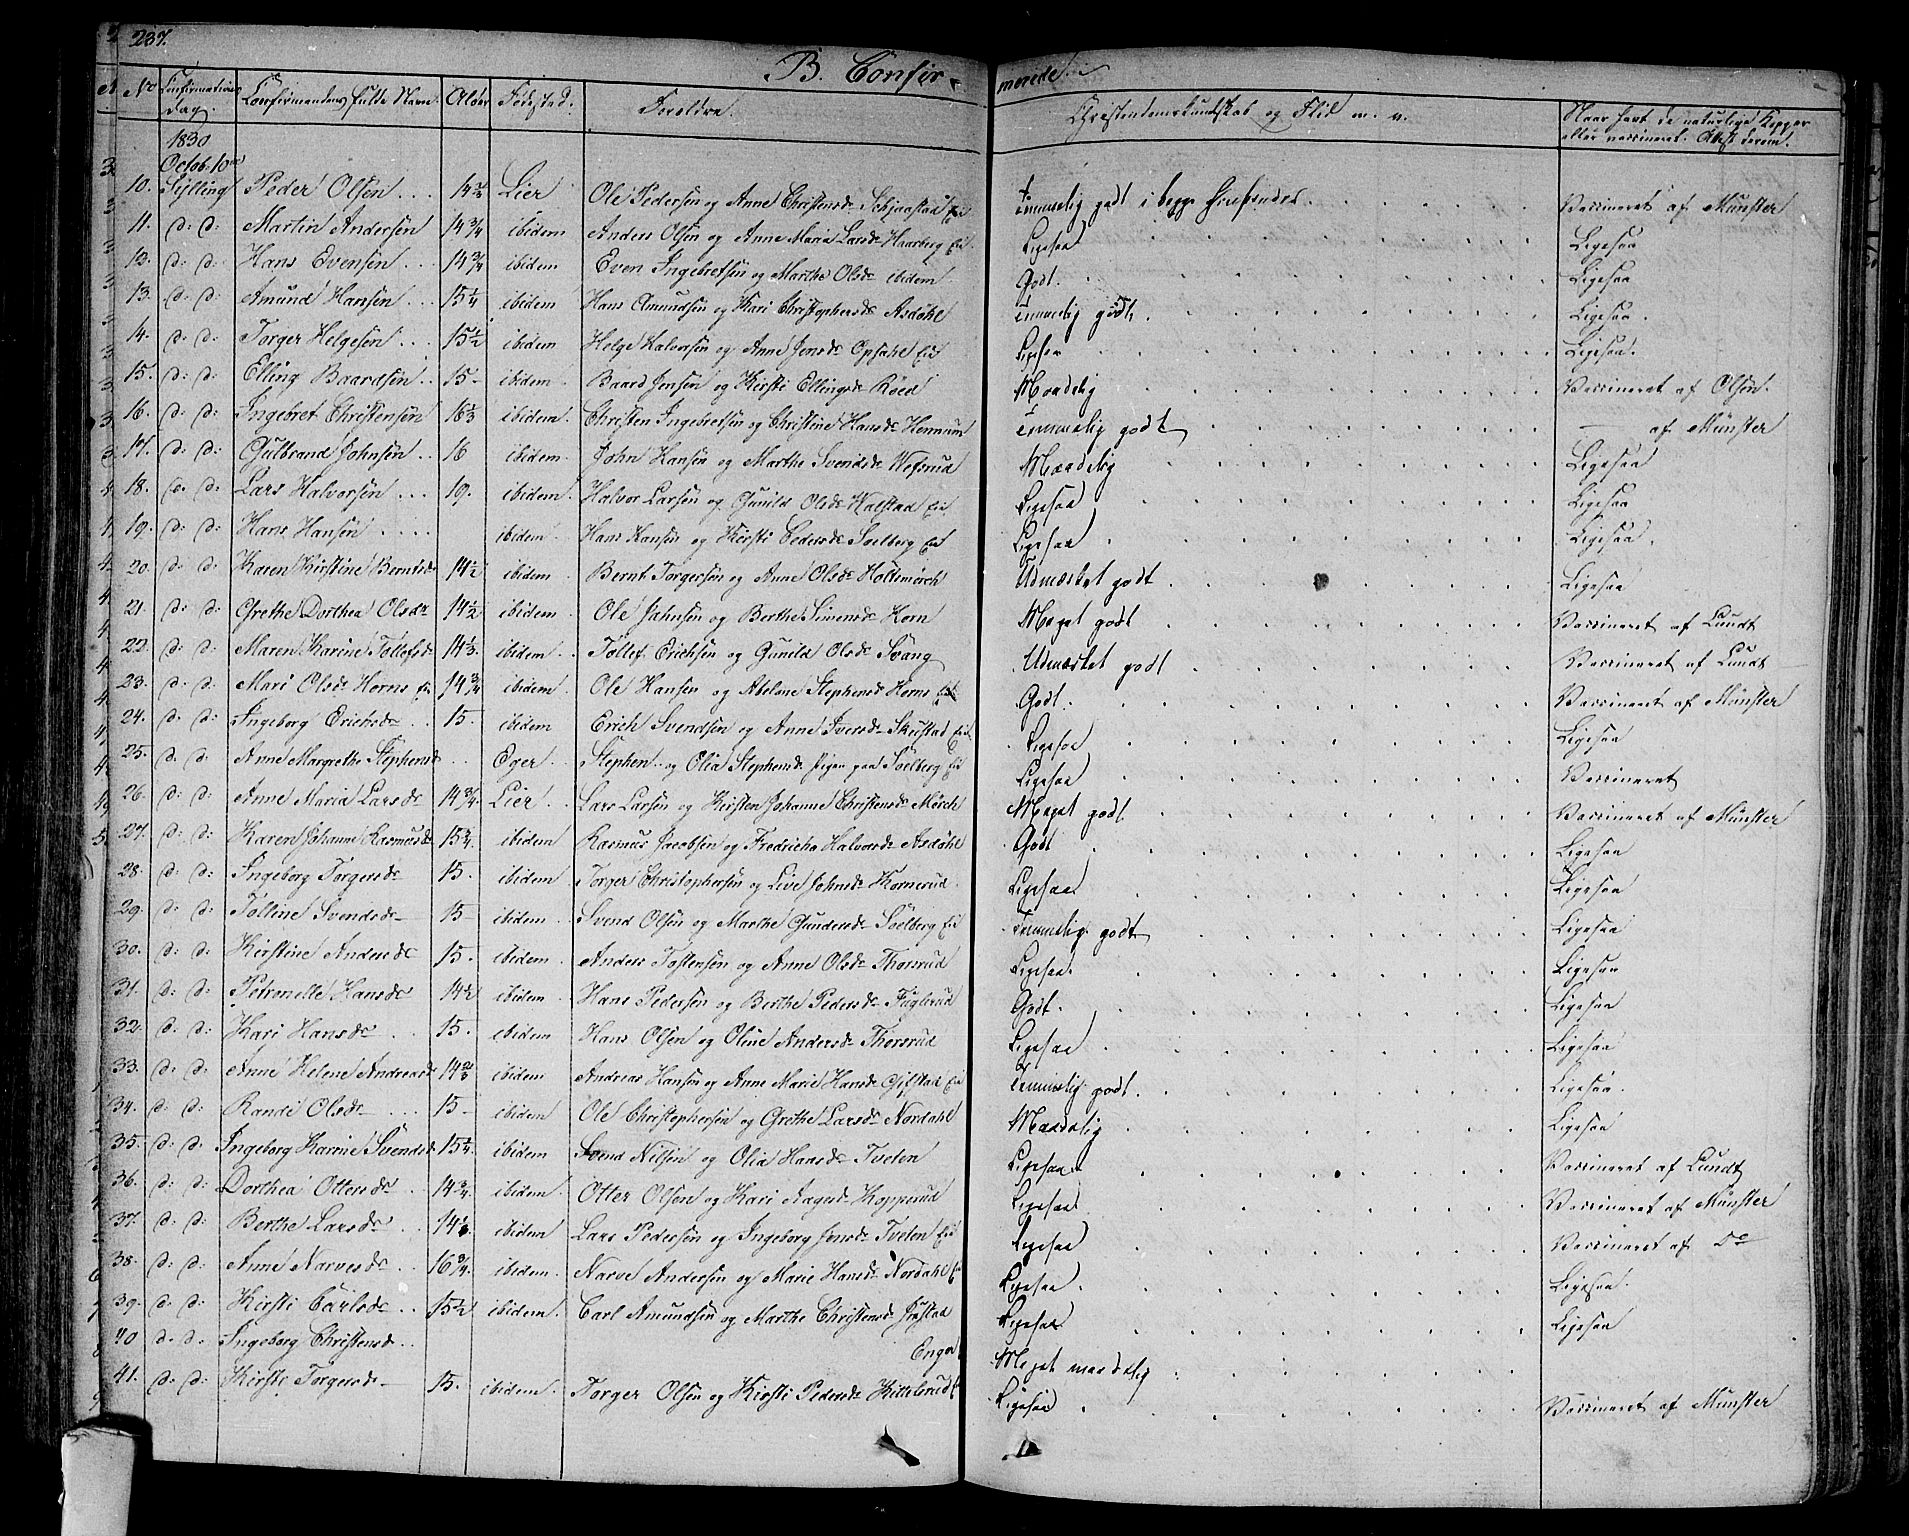 237.
B. Confir-merede
No Confirmations Dag. Confirmandens fulde Navn. Alder Fødested. Forældre. Christendomskundskab og Flid m. v. Naar havt de naturlige Kopper eller vaccineret. Attest derom.
1830
Octob. 10de
10. Sylling Peder Olsen 14 3/4 Lier Ole Pedersen og Anne Christensdr Temmelig godt i begge Vaccineret af Münster
11. d: d: Martin Andersen 14 3/4 ibidem Anders Olsen og Anne Maria Larsdr Haarberg Eie Ligesaa Ligesaa
12. d: d: Hans Evensen 14 3/4 ibidem Even Ingebretsen og Marthe Olsdr ibidem Godt. Ligesaa
13. d: d: Amund Hansen 15 1/4 ibidem Hans Amundsen og Kari Christophersdr Asdøhl Temmelig godt. Ligesaa.
14. d: d: Torger Helgesen 15 1/2 ibidem Helge Halvorsen og Anne Jonsdr Opsahl Eie Ligesaa Ligesaa.
15. d: d: Elling Baardsen 15 ibidem Baard Jensen og Kirsti Ellingsdr Røed Maadelig Vaccineret af Olsen.
16. d: d: Ingebret Christensen 16 1/2 ibidem Christen Ingebretsen og Christine Hansdr Hennum Temmelig godt — af Münster
17. d: d: Gulbrand Johnsen 16 ibidem John Hansen og Marthe Svendsdr Wefsrud Maadelig Ligesaa
18. d: d: Lars Halvorsen 19. ibidem Halvor Larsen og Gunild Olsdr Walstad Eie Ligesaa Ligesaa
19. d: d: Hans Hansen ibidem Hans Hansen og Kirsti Pedersdr Soelberg Eie Ligesaa Ligesaa.
20. d: d: Karen Kirstine Berntsdr 14 1/2 ibidem Bernt Torgersen og Anne Olsdr Holtsmørch Udmærket godt Ligesaa
21. d: d: Grethe Dorthea Olsdr 14 1/2 ibidem Ole Jahnsen og Berthe Simensdr Horn Meget godt Vaccineret af Lundt
22. d: d: Maren Karine Tollefsdr 14 1/3 ibidem Tollef Erichsen og Gunild Olsdr Svang Udmærket godt Vaccineret af Lundt
23. d: d: Mari Olsdr Horns Eie 14 3/4 ibidem Ole Hansen og Abelone Stephensdr Horns Eie Godt. Vaccineret af Münster
24. d: d: Ingeborg Erichsdr 15. ibidem Erich Svendsen og Anne Iversdr Skustad Eie Ligesaa Ligesaa
25. d: d: Anne Margrethe Stephensdr Eger Stephen og Olia Stephensdr Pigen paa Soelberg Eie Ligesaa Vaccineret
26. d: d: Anne Maria Larsdr 14 3/4 Lier Lars Larsen og Kirsten Johanne Christensdr Mørch Meget godt Vaccineret af Münster
27. d: d: Karen Johanne Rasmusdr 15 3/4 ibidem Rasmus Jacobsen og Fredricha Halvorsdr Asdøhl Godt Ligesaa
28. d: d: Ingeborg Torgersdr 15. ibidem Torger Christophersen og Live Johnsdr Kornerud Ligesaa Ligesaa
29. d: d: Tolline Svendsdr 15 ibidem Svend Olsen og Marthe Gundersdr Soelberg Eie Temmelig godt Ligesaa
30. d: d: Kirstine Andersdr 15. ibidem Anders Tostensen og Anne Olsdr Thorsrud Ligesaa. Ligesaa
31. d: d: Petronelle Hansdr 14 1/2 ibidem Hans Pedersen og Berthe Pedersdr Fuglerud Godt. Ligesaa
32. d: d: Kari Hansdr 15. ibidem Hans Olsen og Oline Andersdr Thorsrud Ligesaa Ligesaa
33. d: d: Anne Helene Andreasdr 14 2/3 ibidem Andreas Hansen og Anne Marie Hansdr Gifstad Eie Temmelig godt. Ligesaa.
34. d: d: Randi Olsdr 15. ibidem Ole Christophersen og Grethe Larsdr Nordahl Maadelig Ligesaa
35. d: d: Ingeborg Karine Svendsdr 15 1/4 ibidem Svend Nilsen og Olia Hansdr Tveten Ligesaa Vaccineret af Lundt
36. d: d: Dorthea Ottersdr 14 3/4 ibidem Otter Olsen og Kari Aagesdr Kopperud Ligesaa Vaccineret af Münster
37. d: d: Berthe Larsdr 14 1/2 ibidem Lars Pedersen og Ingeborg Jonsdr Tveten Eie Ligesaa Vaccineret af Do
38. d: d: Anne Narvesdr 16 3/4 ibidem Narve Andersen og Marie Hansdr Nordahl E Ligesaa Ligesaa.
39. d: d: Kirsti Carlsdr 15 1/2 ibidem Carl Amundsen og Marthe Christensdr Ligesaa Ligesaa
40 d: d: Ingeborg Christensdr Enger Meget maadelig
41. d: d: Kirsti Torgersdr 15. ibidem Torger Olsen og Kirsti Pedersdr Kittilsrud Ligesaa Vaccineret af Münster